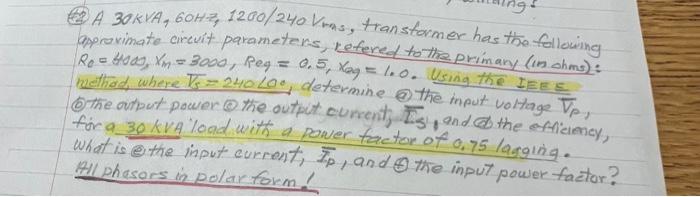 #2 A 30KVA, 60Hz, 1200/240 Vrms, transformer has the following
approximate circuit parameters, refered to the primary (in ohms):
Rc = 4000, Xm = 3000, Req = 0.5, Xeq = 1.0. Using the IEEE
method, where V̅s = 240∠0°, determine ⓐ the input voltage V̅p,
ⓑ the output power ⓒ the output current, I̅s, and ⓓ the efficiency,
for a 30 KVA load with a power factor of 0.75 lagging.
What is ⓔ the input current, I̅p, and ⓕ the input power factor?
All phasors in polar form!